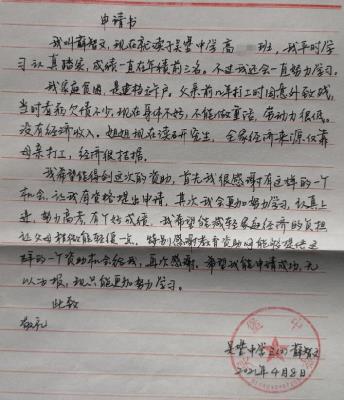 申请书
我叫薛智文，现在就读于吴堡中学高 班，我平时学
习认真踏实，成绩一直在年级前三名。不过我还会一直努力学习。
我家庭贫困，是建档立卡户，父亲前几年打工时因意外致残，
当时看病欠债不少，现在身体不好，不能做重活，劳动力很低。
没有经济收入，姐姐现在读研究生，全家经济来源仅靠
母亲打工，经济很拮据。
我希望能得到这次的资助，首先我很感谢有这样的一个
机会，让我有资格提出申请，其次我会更加努力学习，认真上
进，努力高考有个好成绩，我希望能减轻家庭经济的负担
让父母稍微能轻便一点，特别感谢教育资助网能够提供这
样的一个资助机会给我，再次感谢，希望我能申请成功，无
以为报，现只能更加努力学习。
此致
敬礼
吴堡中学 薛智文
2021年4月8日